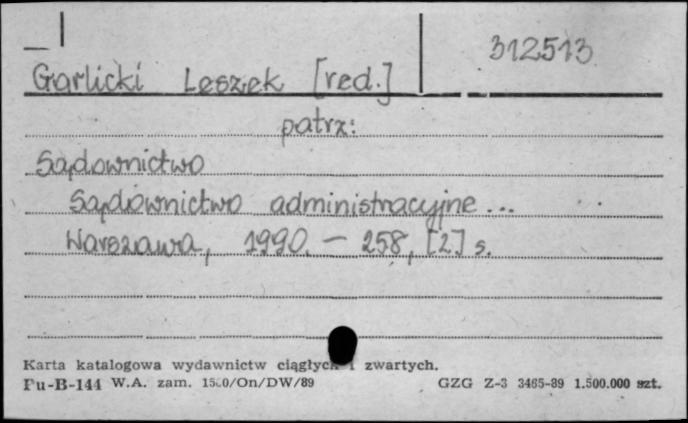 312513
Garlicki Leszek [red.]
patrz:
Sądownictwo
Sądownictwo administracyjne ...
Warszawa, 1990. – 258, [2] s.
Karta katalogowa wydawnictw ciągłych i zwartych.
Pu-B-144 W.A. zam. /On/DW/89 GZG Z-3 3465-89 1.500.000 szt.